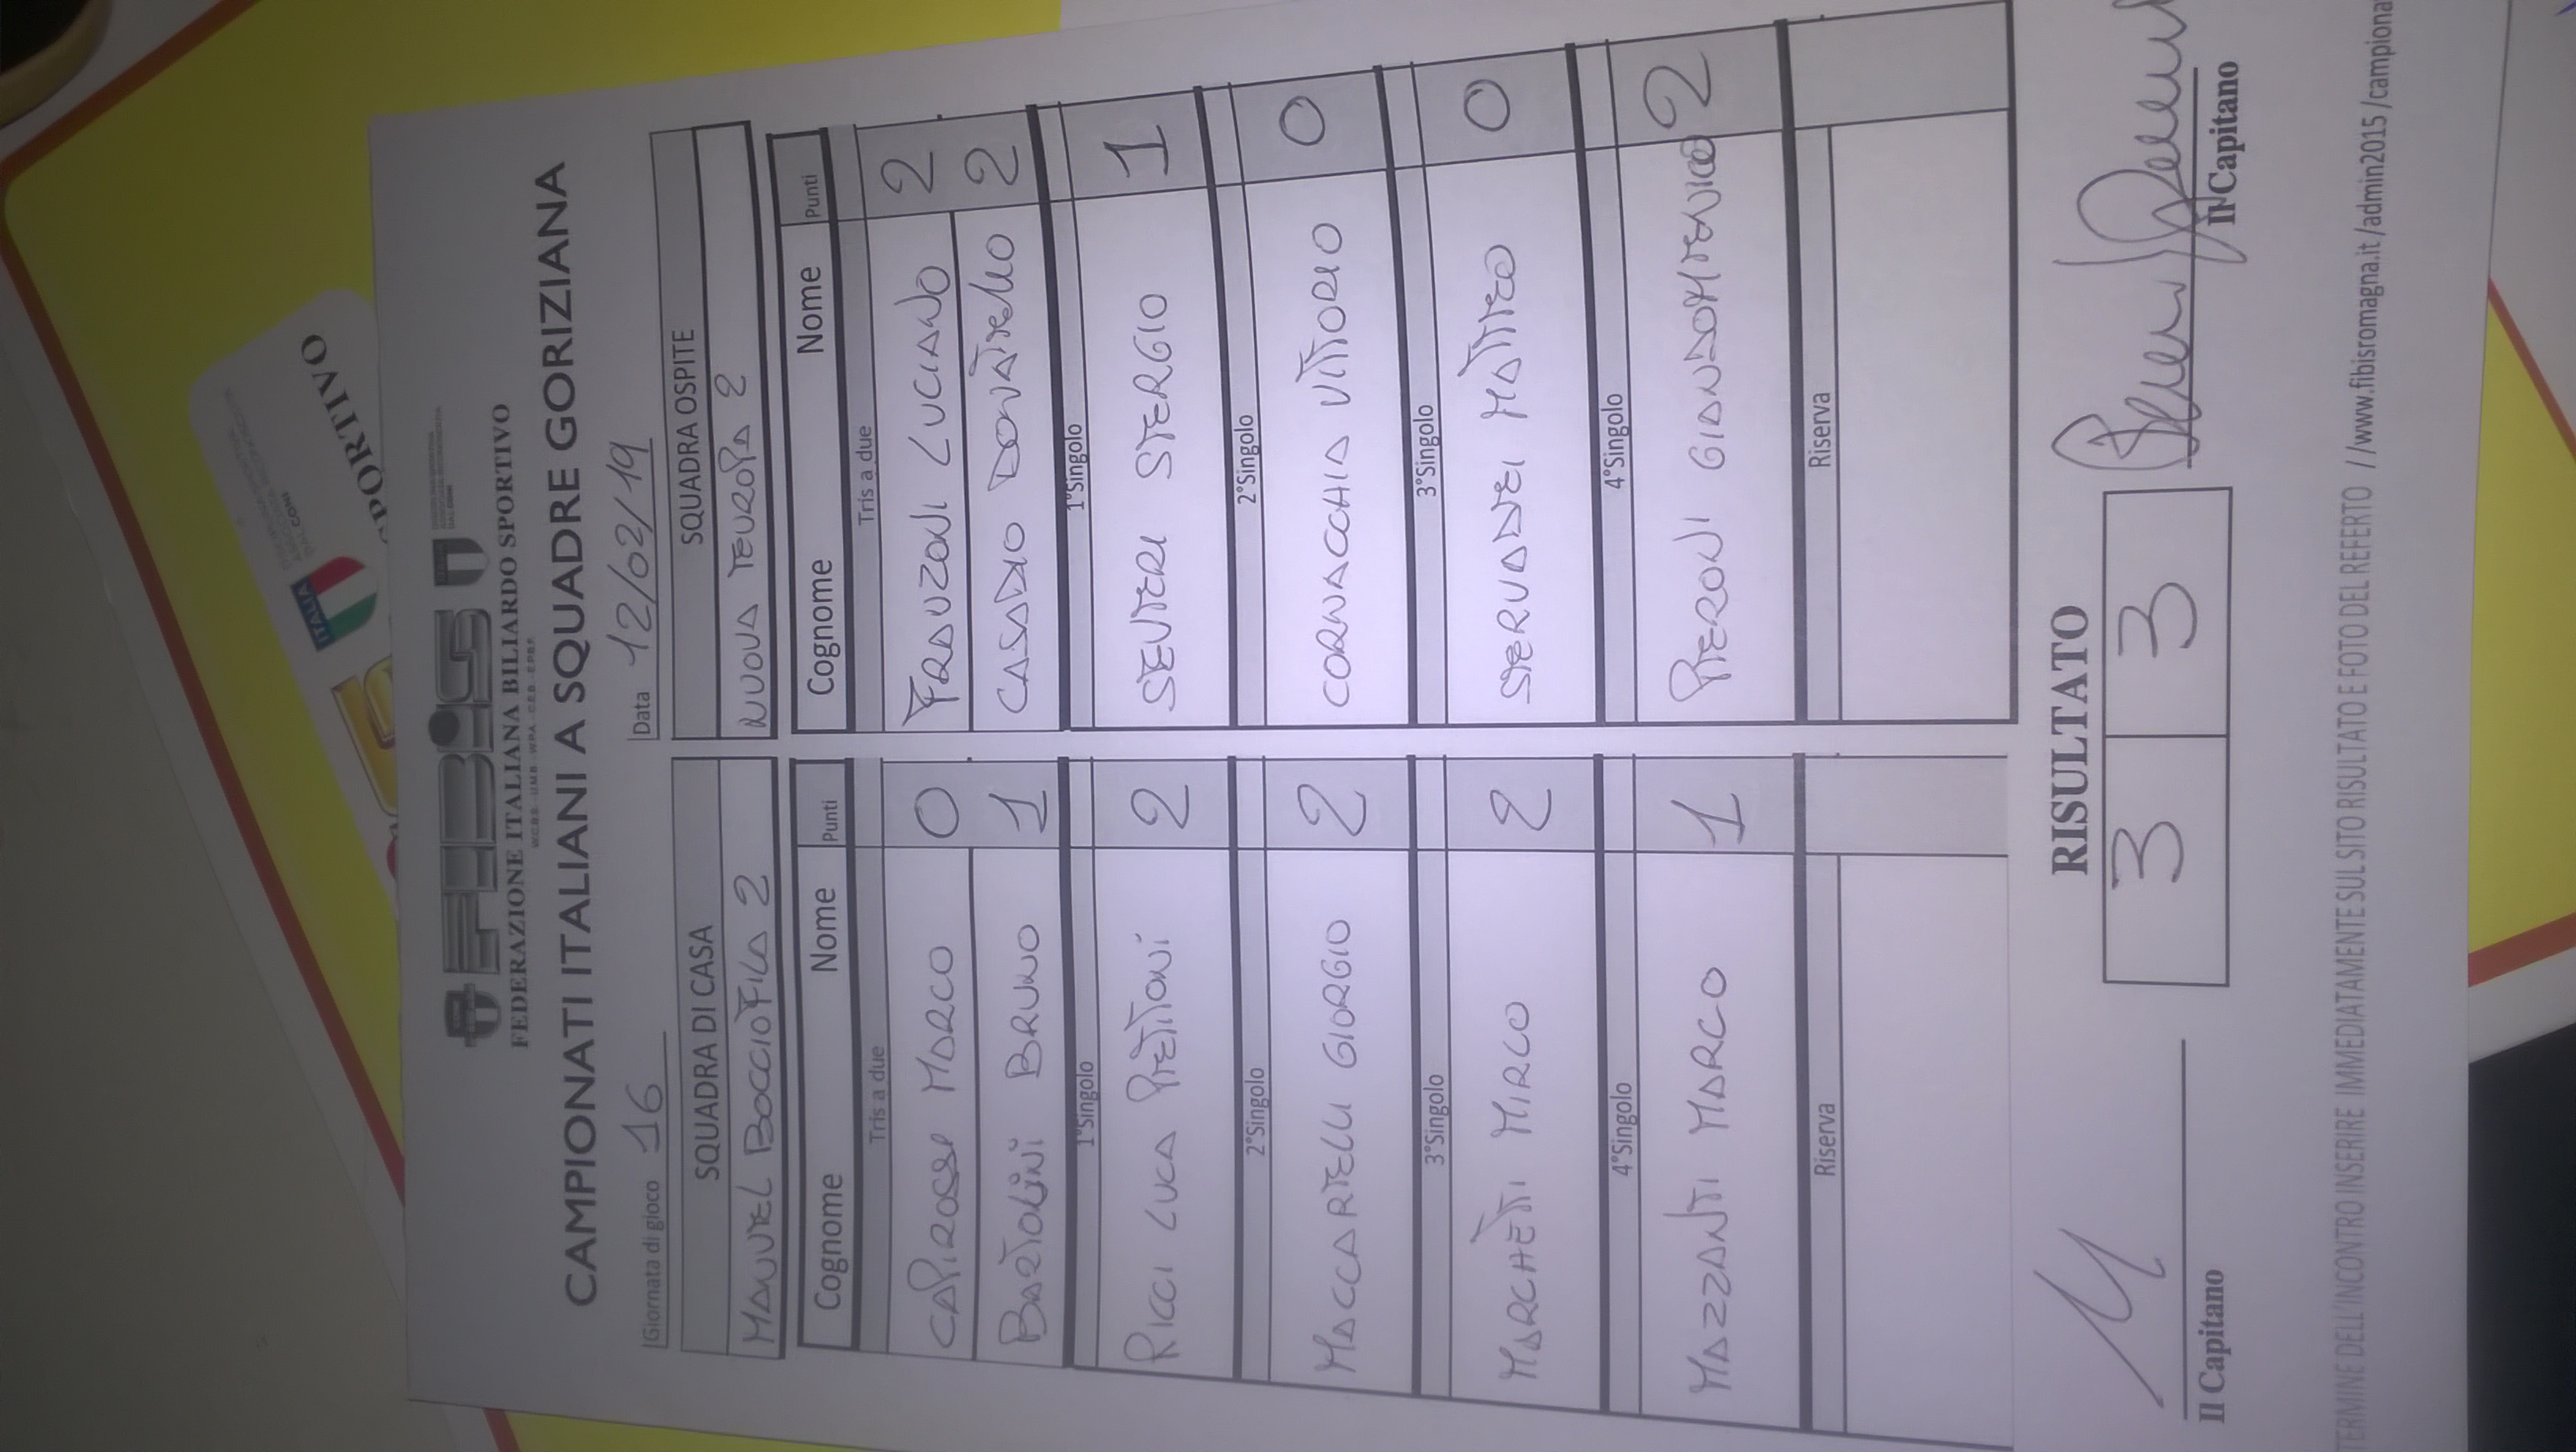 ITALIA
SPORTIVO
FIBiS
FEDERAZIONE ITALIANA BILIARDO SPORTIVO
CAMPIONATI ITALIANI A SQUADRE GORIZIANA
Giornata di gioco 16 Data 12/02/19
SQUADRA DI CASA SQUADRA OSPITE
MANUEL BOCCIOFILA 2 NUOVA EUROPA 2
Cognome Nome Punti Cognome Nome Punti
Tris a due Tris a due
CAPIROSSI MARCO 0 FRANZONI LUCIANO 2
BARTOLINI BRUNO 1 CASADIO DONATELLO 2
1°Singolo 1°Singolo
RICCI LUCA PRETTONI 2 SEVERI SERGIO 1
2°Singolo 2°Singolo
MACCARELLI GIORGIO 2 CORNACCHIA VITTORIO 0
3°Singolo 3°Singolo
MARCHETTI MIRCO 2 SERVADEI MATTEO 0
4°Singolo 4°Singolo
MAZZANTI MARCO 1 PIERONI GIANDOMENICO 2
Riserva Riserva
RISULTATO
3 3
Il Capitano Il Capitano
TERMINE DELL'INCONTRO INSERIRE IMMEDIATAMENTE SUL SITO RISULTATO E FOTO DEL REFERTO //www.fibisromagna.it/admin2015/campiona